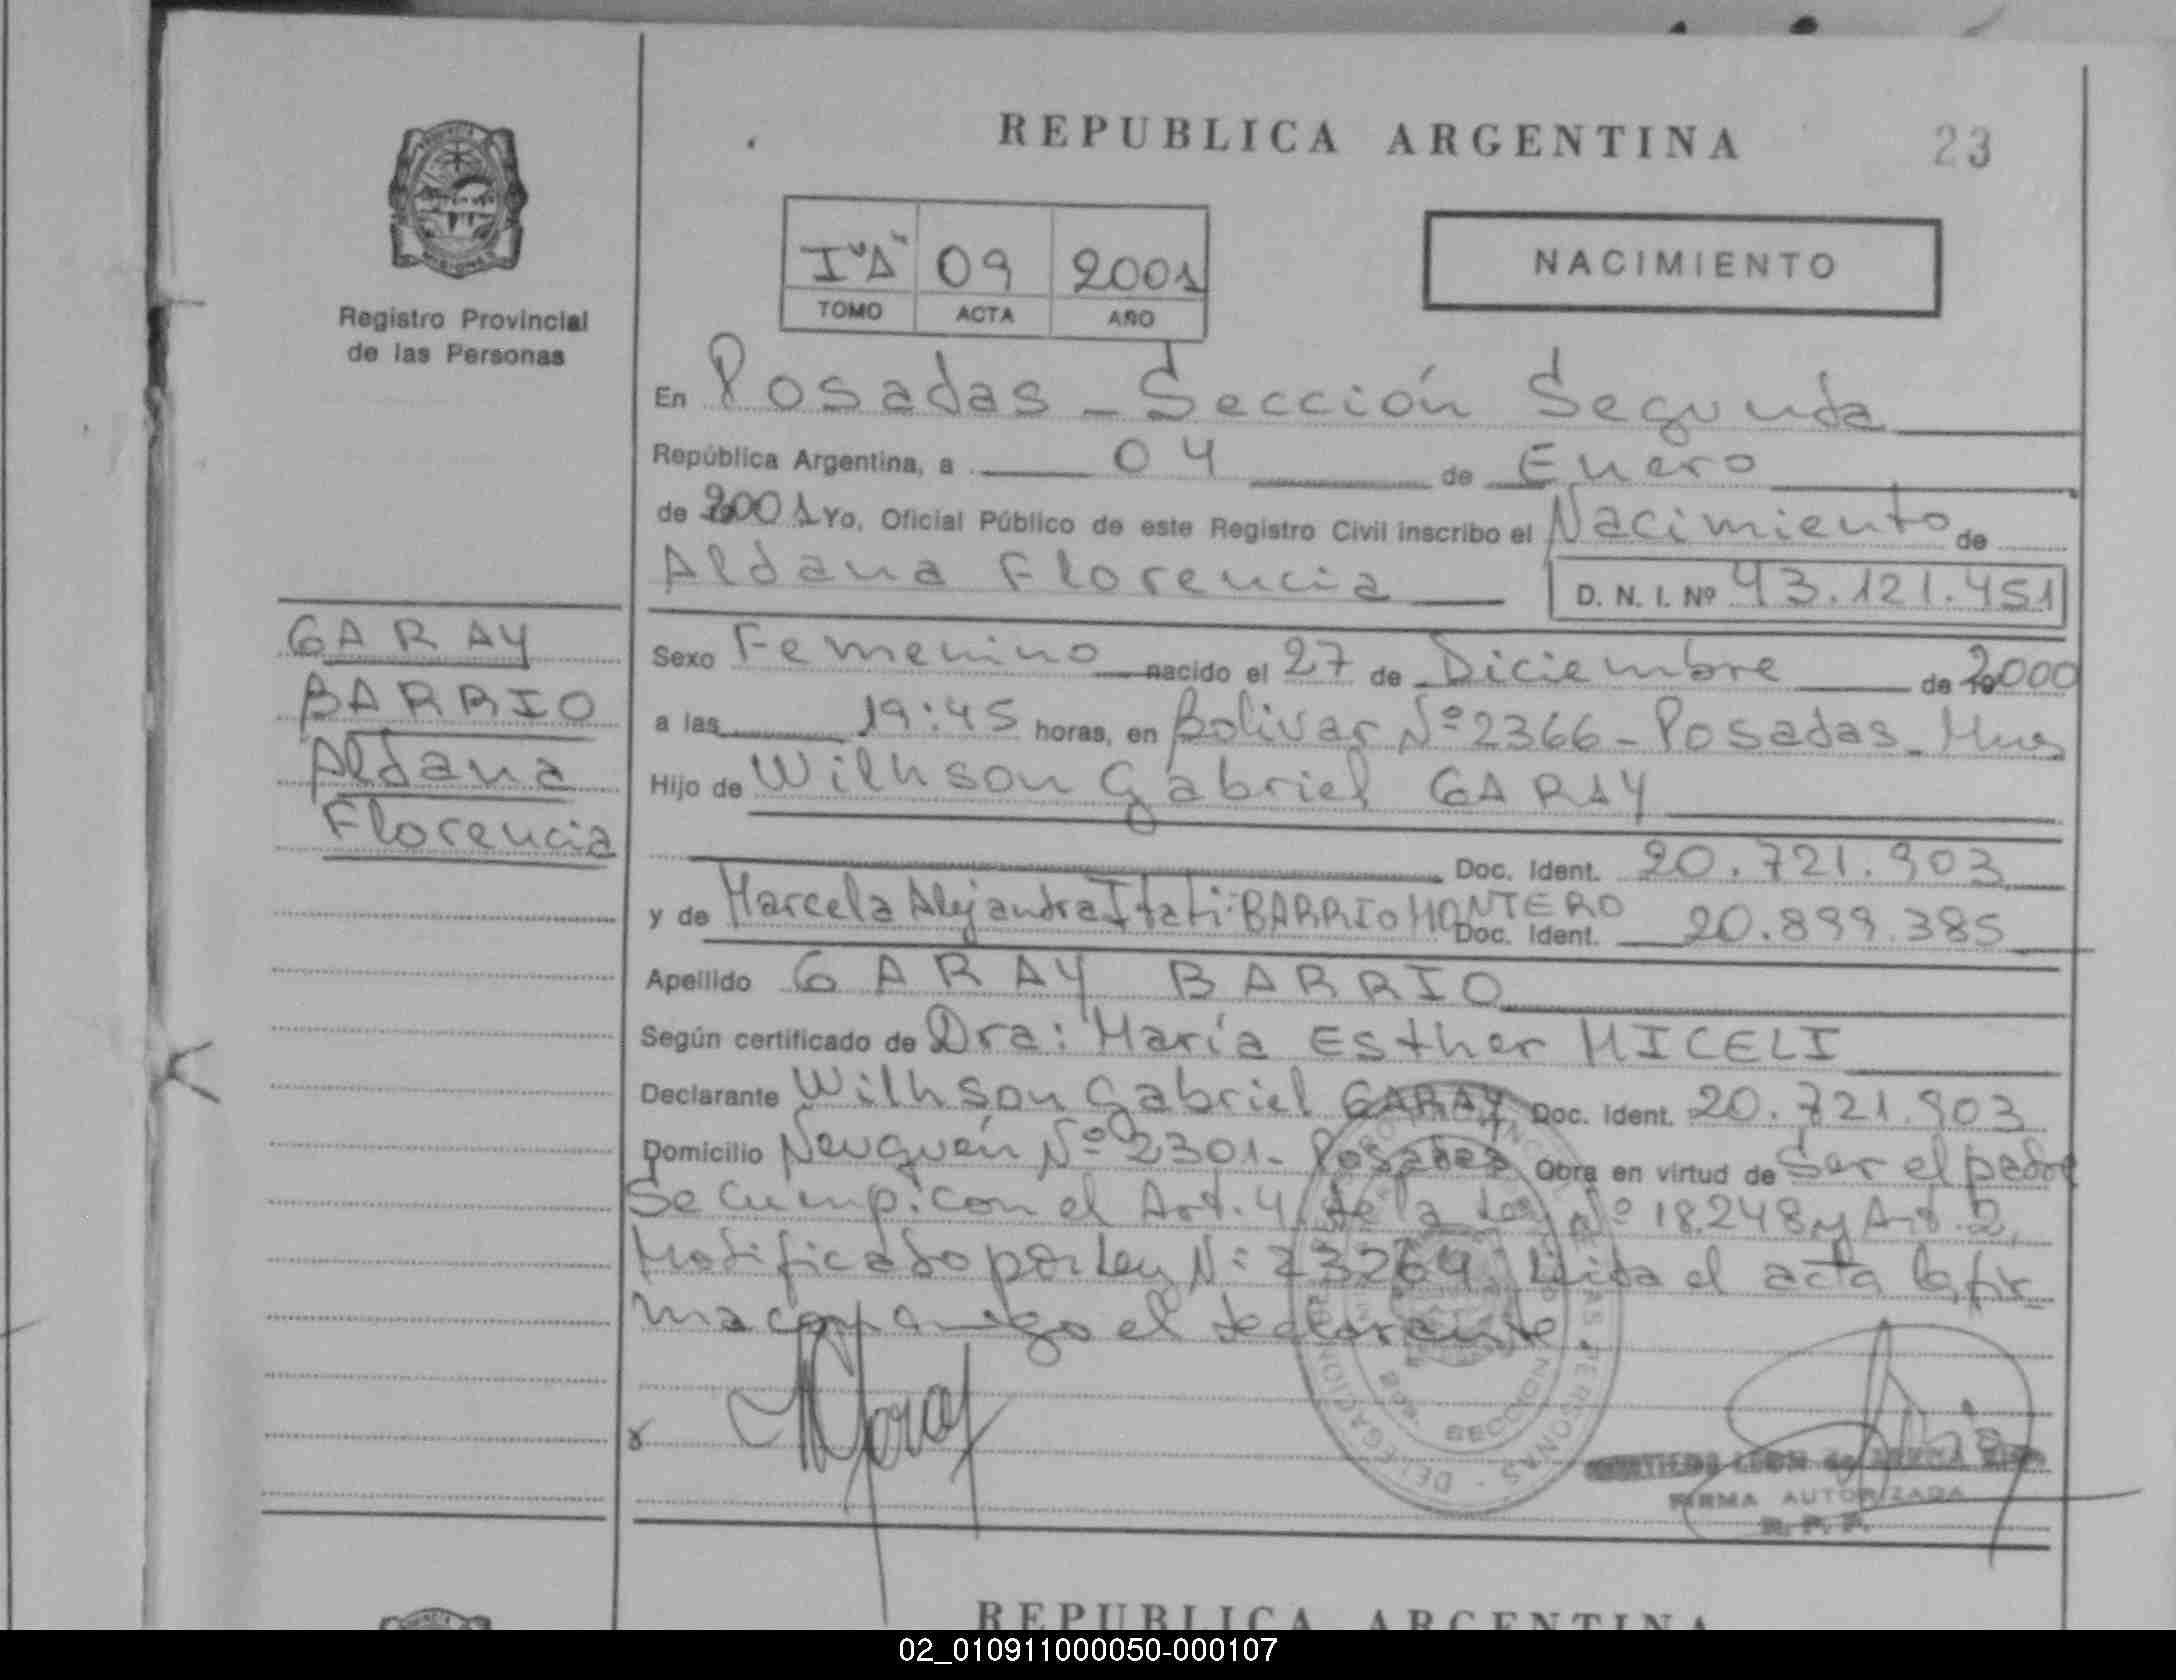 REPUBLICA ARGENTINA
23
I"A" 09 2001
TOMO ACTA AÑO
NACIMIENTO
Registro Provincial
de las Personas
En Posadas - Sección Segunda
República Argentina, a 04 de Enero
de 2001 Yo, Oficial Público de este Registro Civil inscribo el Nacimiento de
Aldana Florencia D. N. I. Nº 43.121.451
GARAY
BARRIO
Aldana
Florencia
Sexo Femenino nacido el 27 de Diciembre de 2000
a las 19:45 horas, en Bolivar Nº 2366 - Posadas - Mnes
Hijo de Wilhson Gabriel GARAY
Doc. Ident. 20.721.903
y de Marcela Alejandra Itati BARRIO MONTERO Doc. Ident. 20.899.385
Apellido GARAY BARRIO
Según certificado de Dra: María Esther MICELI
Declarante Wilhson Gabriel GARAY Doc. Ident. 20.721.903
Domicilio Neuquén Nº 2301 - Posadas Obra en virtud de Ser el padre
Se cump. con el Art. 4 de la Ley Nº 18.248 y Art. 2,
Modificado por Ley Nº 23264. Leída el acta la fir-
ma conmigo el declarante
DELEGACION SECCION 2da.
FIRMA AUTORIZADA
R. P. P.
REPUBLICA ARGENTINA
02_010911000050-000107